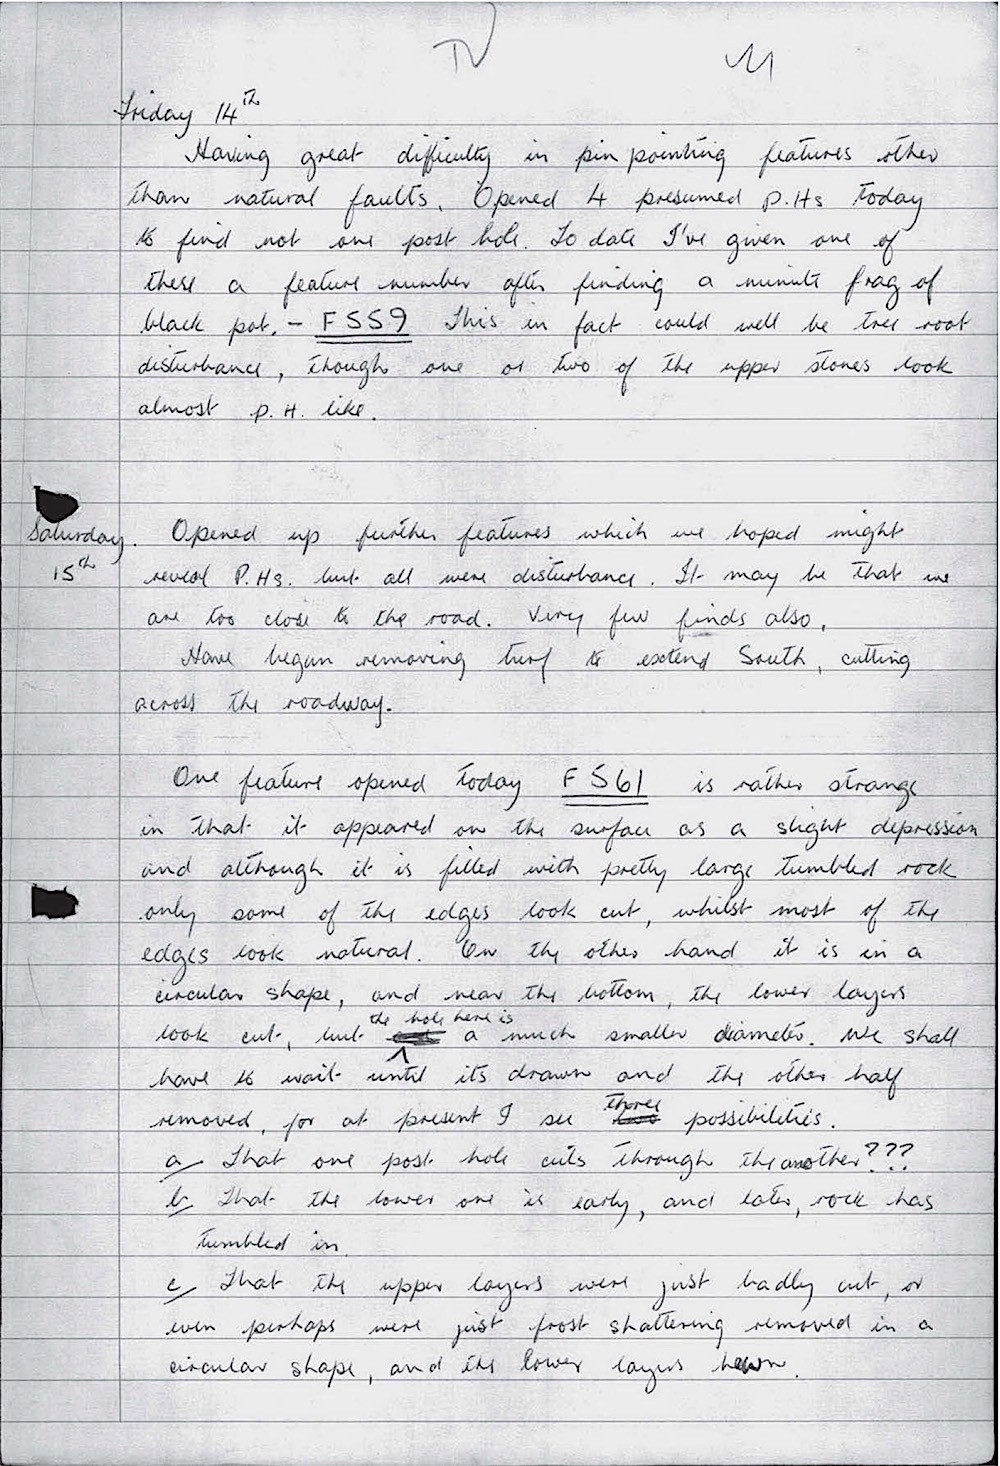 IV
Friday 14th
Having great difficulty in pin pointing features other
than natural faults. Opened 4 presumed P.Hs today
to find not one post hole. To date I've given one of
these a feature number after finding a minute frag of
black pot. - F559 This in fact could well be tree root
disturbance, though one or two of the upper stones look
almost P.H. like.
Saturday 15th
Opened up further features which we hoped might
reveal P.Hs. but all were disturbance. It may be that we
are too close to the road. Very few finds also.
Have begun removing turf to extend South, cutting
across the roadway.
One feature opened today F561 is rather strange
in that it appeared on the surface as a slight depression
and although it is filled with pretty large tumbled rock
only some of the edges look cut, whilst most of the
edges look natural. On the other hand it is in a
circular shape, and near the bottom, the lower layers
look cut, but the hole here is a much smaller diameter. We shall
have to wait until its drawn and the other half
removed, for at present I see three possibilities.
a/ That one post hole cuts through the another???
b/ That the lower one is early, and later, rock has
tumbled in.
c/ That the upper layers were just badly cut, or
even perhaps were just frost shattering removed in a
circular shape, and the lower layers hewn.